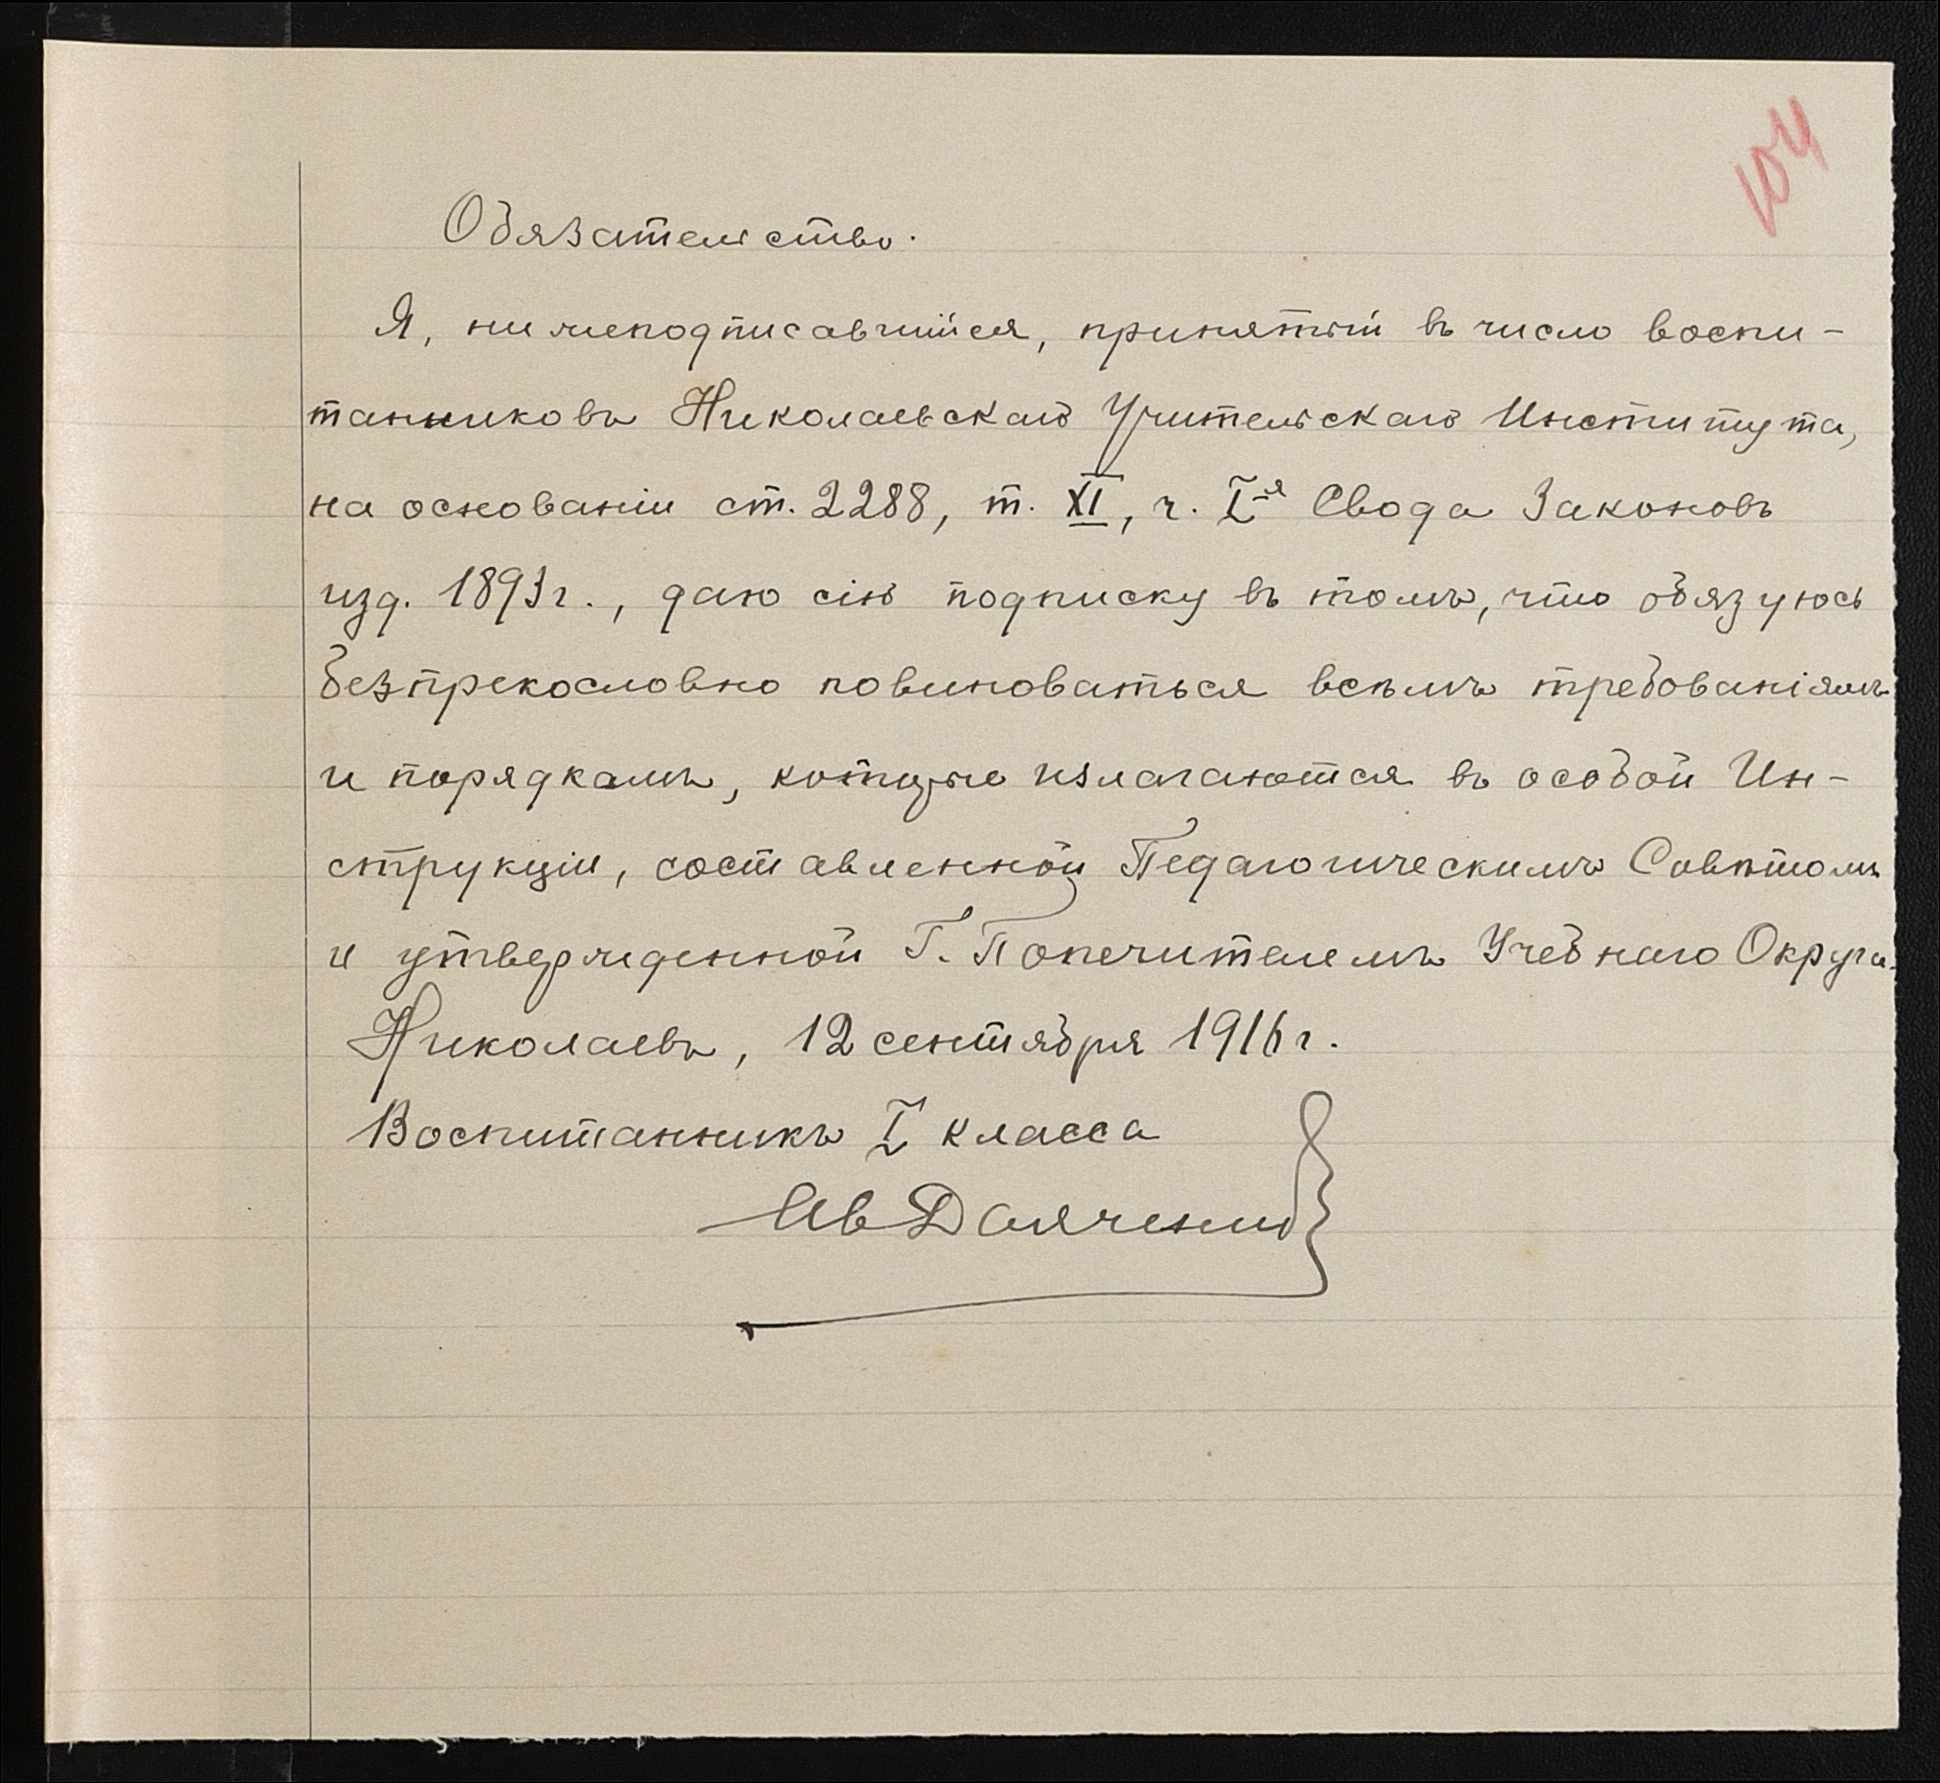 104
Обязательство.
Я, нижеподписавшійся, принятый въ число воспи-
танниковъ Николаевскаго Учительскаго Института,
на основаніи ст. 2288, т. XI, ч. I-я Свода Законовъ
изд. 1893 г., даю сію подписку въ томъ, что обязуюсь
безпрекословно повиноваться всѣмъ требованіямъ
и порядкамъ, которые излагаются въ особой Ин-
струкціи, составленной Педагогическимъ Совѣтомъ
и утвержденной Г. Попечителемъ Учебнаго Округа.
Николаевъ, 12 сентября 1916 г.
Воспитанникъ I класса
Ив